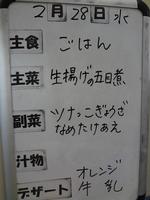 2月28日 水
主食 ごはん
主菜 生揚げの五目煮
副菜 ツナっこぎょうざ
なめたけあえ
汁物
デザート オレンジ
牛乳